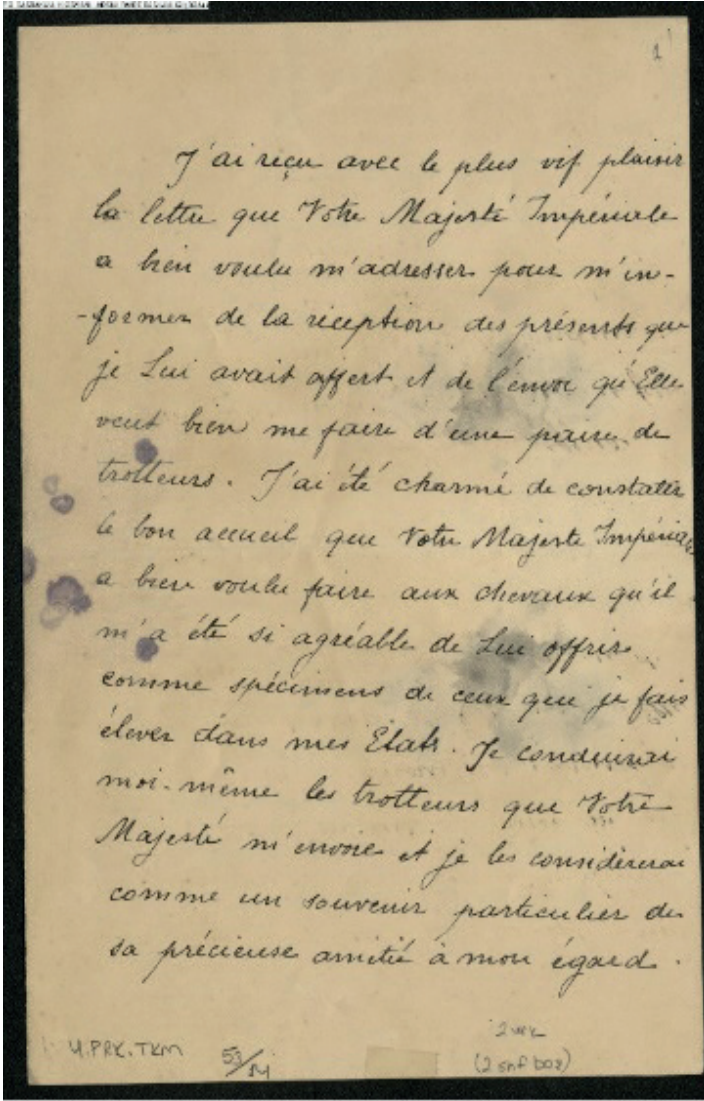 1
J'ai reçu avec le plus vif plaisir
la lettre que Votre Majesté Impériale
a bien voulu m'adresser pour m'in-
-former de la réception des présents que
je Lui avait offert et de l'envoi qu'Elle
veut bien me faire d'une paire de
trotteurs. J'ai été charmé de constater
le bon accueil que Votre Majesté Impériale
a bien voulu faire aux chevaux qu'il
m'a été si agréable de Lui offrir
comme spécimens de ceux que je fais
élever dans mes Etats. Je conduirai
moi-même les trotteurs que Votre
Majesté m'envoie et je les considèrerai
comme un souvenir particulier de
sa précieuse amitié à mon égard.
Y.PRK.TKM 53/14
2